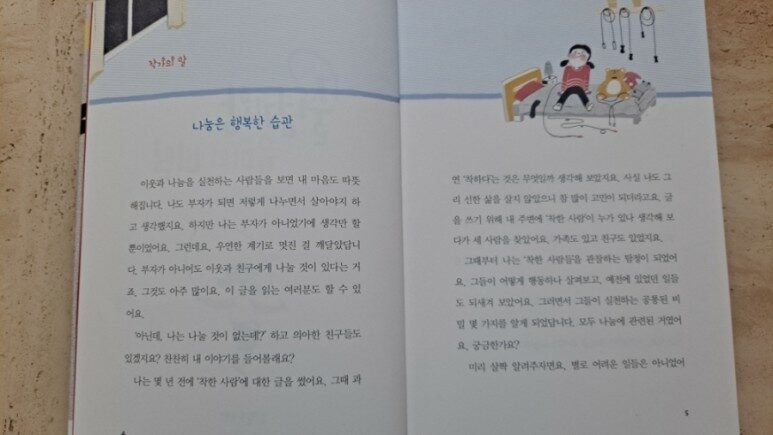 작가의 말
나눔은 행복한 습관
이웃과 나눔을 실천하는 사람들을 보면 내 마음도 따뜻
해집니다. 나도 부자가 되면 저렇게 나누면서 살아야지 하
고 생각했지요. 하지만 나는 부자가 아니었기에 생각만 할
뿐이었어요. 그런데요, 우연한 계기로 멋진 걸 깨달았답니
다. 부자가 아니어도 이웃과 친구에게 나눌 것이 있다는 거
죠. 그것도 아주 많이요. 이 글을 읽는 여러분도 할 수 있
어요.
'아닌데, 나는 나눌 것이 없는데?' 하고 의아한 친구들도
있겠지요? 찬찬히 내 이야기를 들어볼래요?
나는 몇 년 전에 '착한 사람'에 대한 글을 썼어요. 그때 과
연 '착하다'는 것은 무엇일까 생각해 보았지요. 사실 나도 그
리 선한 삶을 살지 않았으니 참 많이 고민이 되더라고요. 글
을 쓰기 위해 내 주변에 '착한 사람'이 누가 있나 생각해 보
다가 세 사람을 찾았어요. 가족도 있고 친구도 있었지요.
그때부터 나는 '착한 사람들'을 관찰하는 탐정이 되었어
요. 그들이 어떻게 행동하나 살펴보고, 예전에 있었던 일들
도 되새겨 보았어요. 그러면서 그들이 실천하는 공통된 비
밀 몇 가지를 알게 되었답니다. 모두 나눔에 관련된 거였어
요. 궁금한가요?
미리 살짝 알려주자면요, 별로 어려운 일들은 아니었어
5